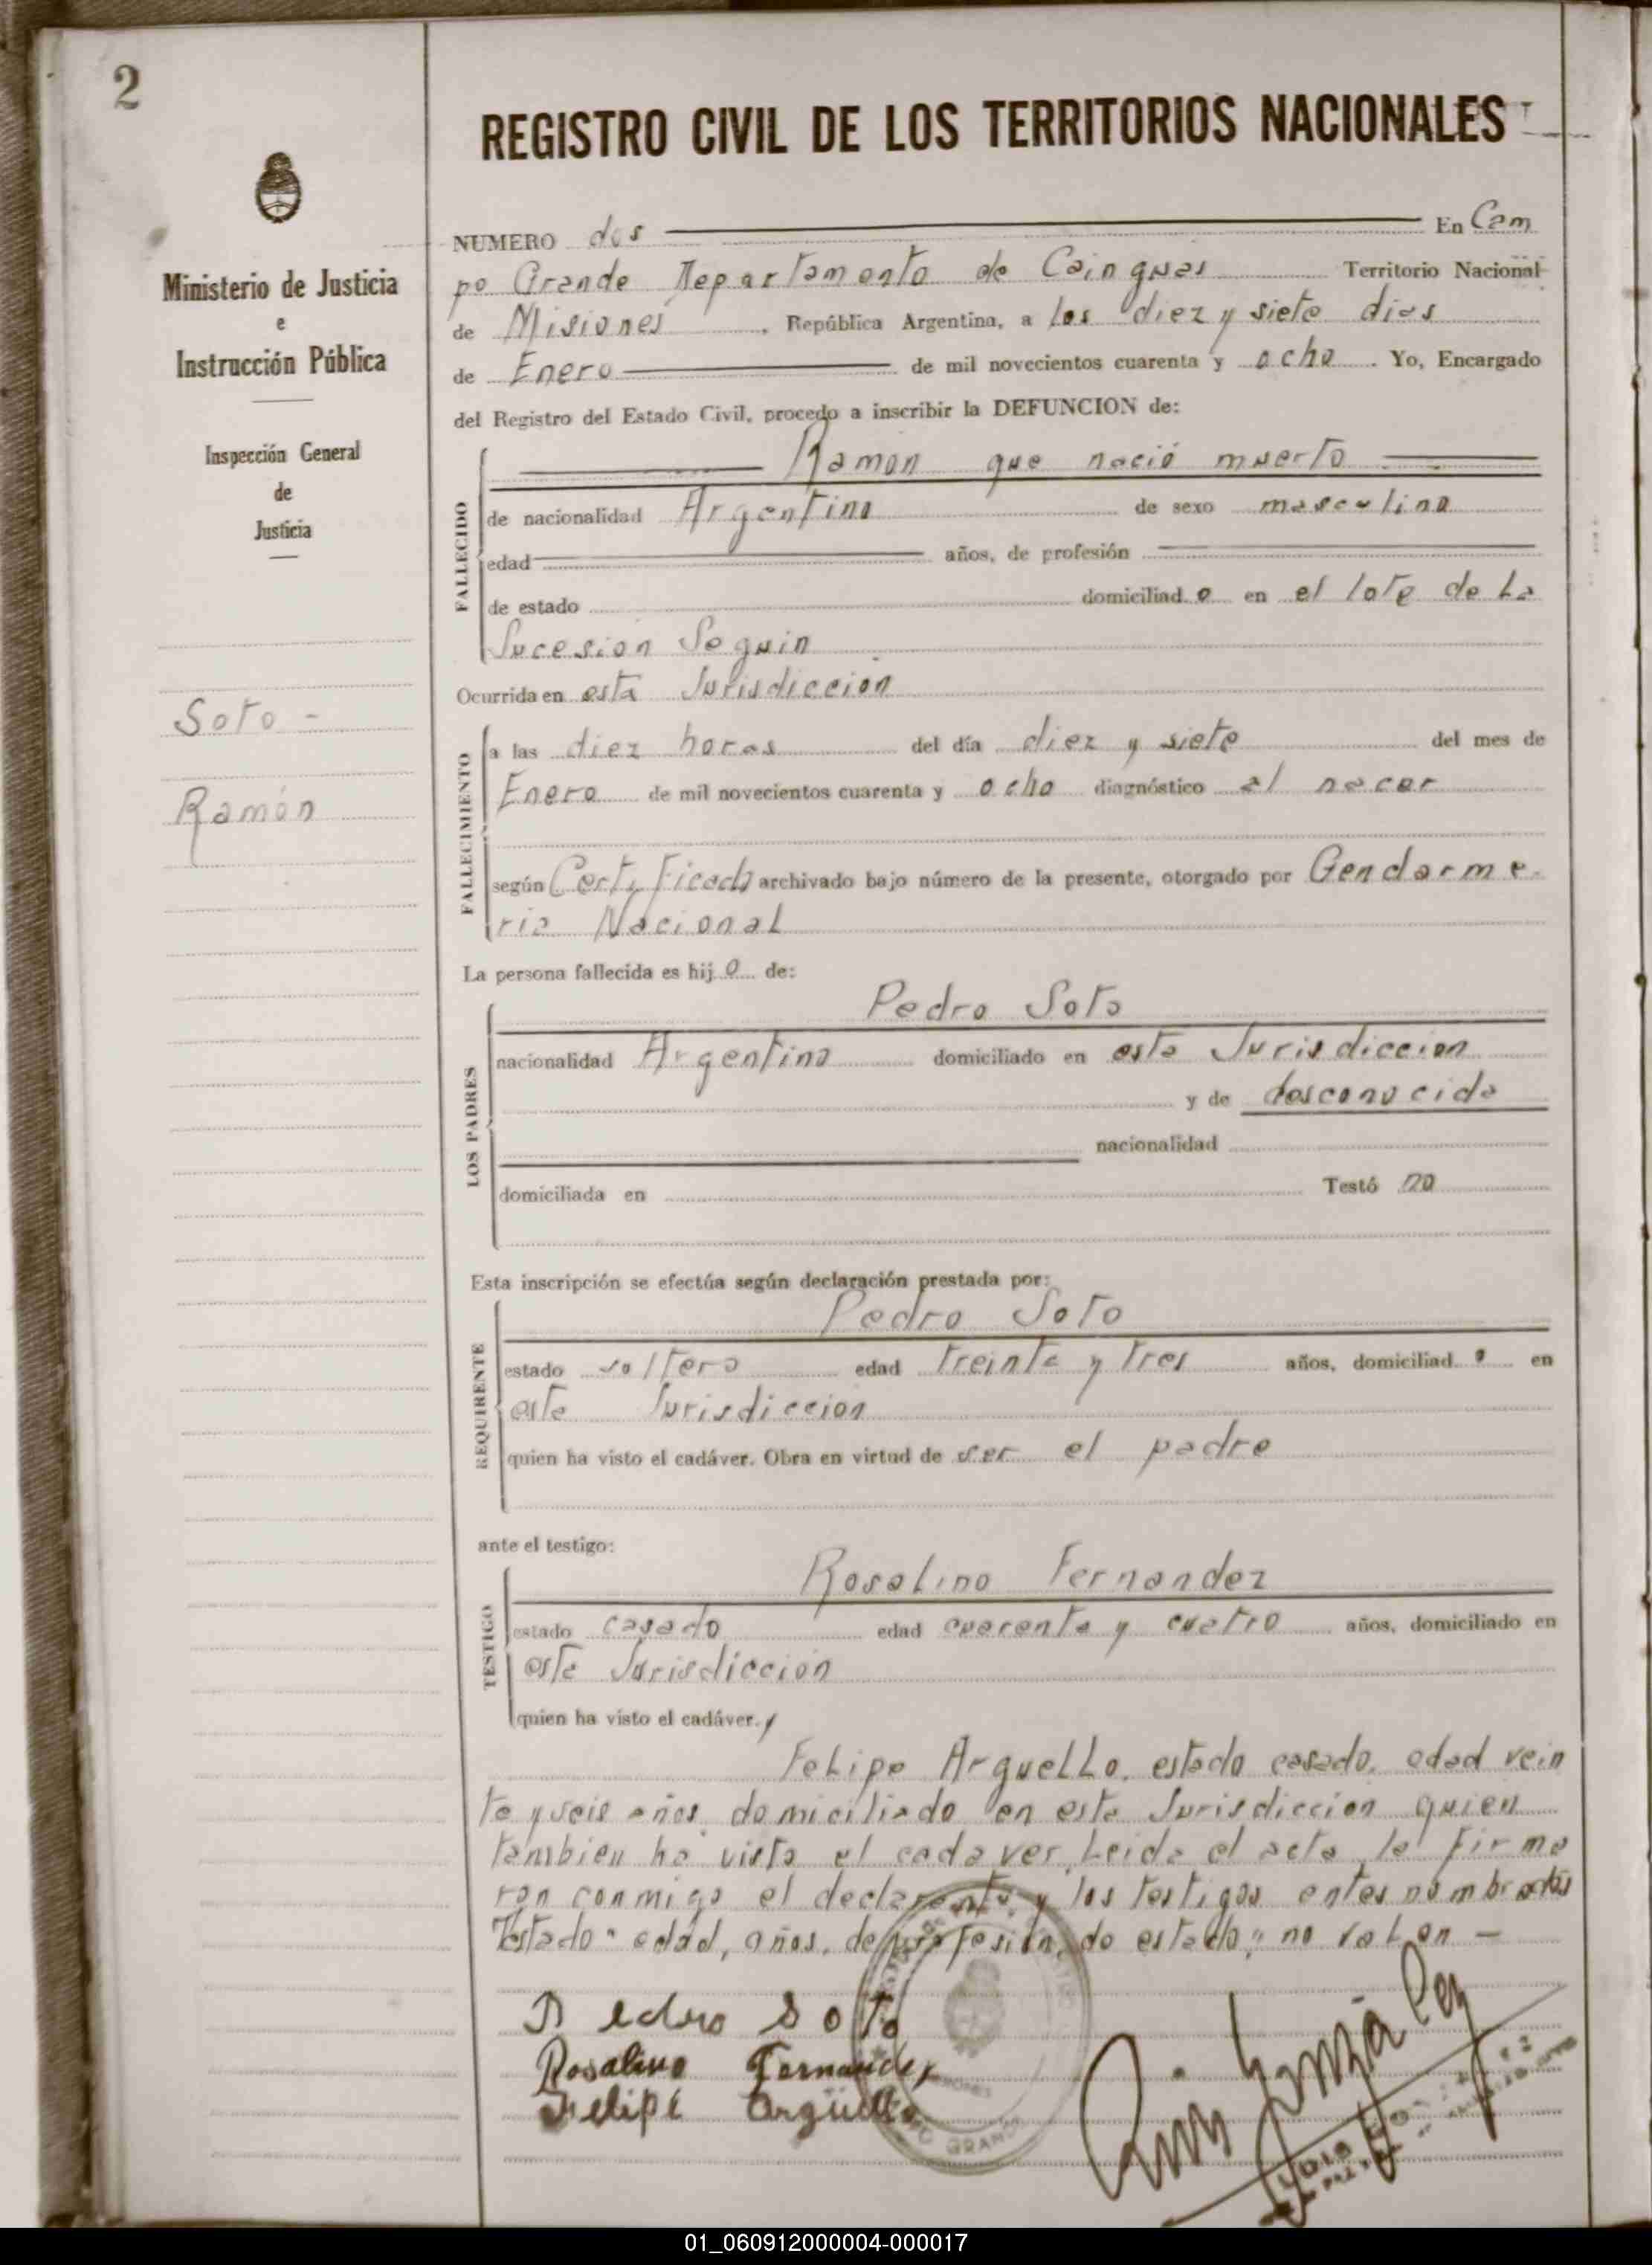 2
REGISTRO CIVIL DE LOS TERRITORIOS NACIONALES
Ministerio de Justicia
e
Instrucción Pública
Inspección General
de
Justicia
Soto -
Ramón
NUMERO dos En Cam
po Grande Departamento de Cainguas Territorio Nacional
de Misiones, República Argentina, a los diez y siete dias
de Enero de mil novecientos cuarenta y ocho. Yo, Encargado
del Registro del Estado Civil, procedo a inscribir la DEFUNCION de:
FALLECIDO
Ramon que nació muerto
de nacionalidad Argentino de sexo masculino
edad años, de profesión
de estado domiciliado en el lote de La
Sucesion Seguin
Ocurrida en esta Jurisdiccion
FALLECIMIENTO
a las diez horas del día diez y siete del mes de
Enero de mil novecientos cuarenta y ocho diagnóstico al nacer
según Certificado archivado bajo número de la presente, otorgado por Gendarme-
ria Nacional
La persona fallecida es hijo de:
LOS PADRES
Pedro Soto
nacionalidad Argentino domiciliado en esta Jurisdiccion
y de desconocida
nacionalidad
domiciliada en Testó no
Esta inscripción se efectúa según declaración prestada por:
REQUIRENTE
Pedro Soto
estado soltero edad treinta y tres años, domiciliado en
esta Jurisdiccion
quien ha visto el cadáver. Obra en virtud de ser el padre
ante el testigo:
TESTIGO
Rosalino Fernandez
estado casado edad cuarenta y cuatro años, domiciliado en
esta Jurisdiccion
quien ha visto el cadáver. y
Felipe Arguello, estado casado, edad vein
te y seis años, domiciliado en esta Jurisdiccion quien
tambien ha visto el cadaver. Leida el acta la firma
ron conmigo el declarante y los testigos antes nombrados
Testado "edad, años, de profesión, de estado," no valen —
Pedro Soto
Rosalino Fernandez
Felipe Argüello
GRANDE
01_060912000004-000017